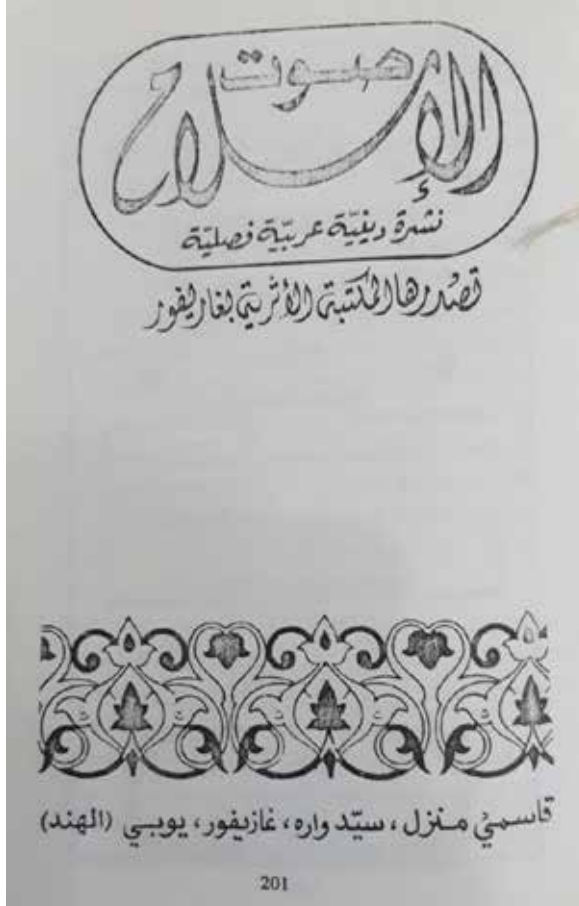 صوت
الإسلام
نشرة دينيّة عربيّة فصليّة
تصدرها المكتبة الأثرية بغازيفور
قاسمي منزل، سيّد واره، غازيفور، يوبي (الهند)
201